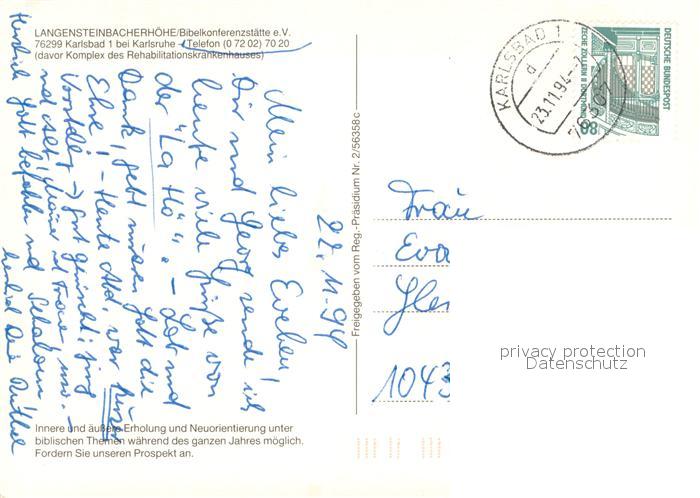 LANGENSTEINBACHERHÖHE/Bibelkonferenzstätte e.V.
76299 Karlsbad 1 bei Karlsruhe - Telefon (0 72 02) 70 20
(davor Komplex des Rehabilitationskrankenhauses)
22. 11. 94
Mein liebes Evchen!
Dir und Georg sende ich
heute viele Grüße von
der "LaHö". - Lob und
Dank, gebt unserm Gott die
Ehre! - Heute Abd. war
und
herzlich Dein
Innere und äußere Erholung und Neuorientierung unter
biblischen Themen während des ganzen Jahres möglich.
Fordern Sie unseren Prospekt an.
Freigegeben vom Reg.-Präsidium Nr. 2/56358c
KARLSBAD 1
d
23.11.94
76307
DEUTSCHE BUNDESPOST
ZECHE ZOLLERN II DORTMUND
80
Frau
Eva
1043
privacy protection
Datenschutz